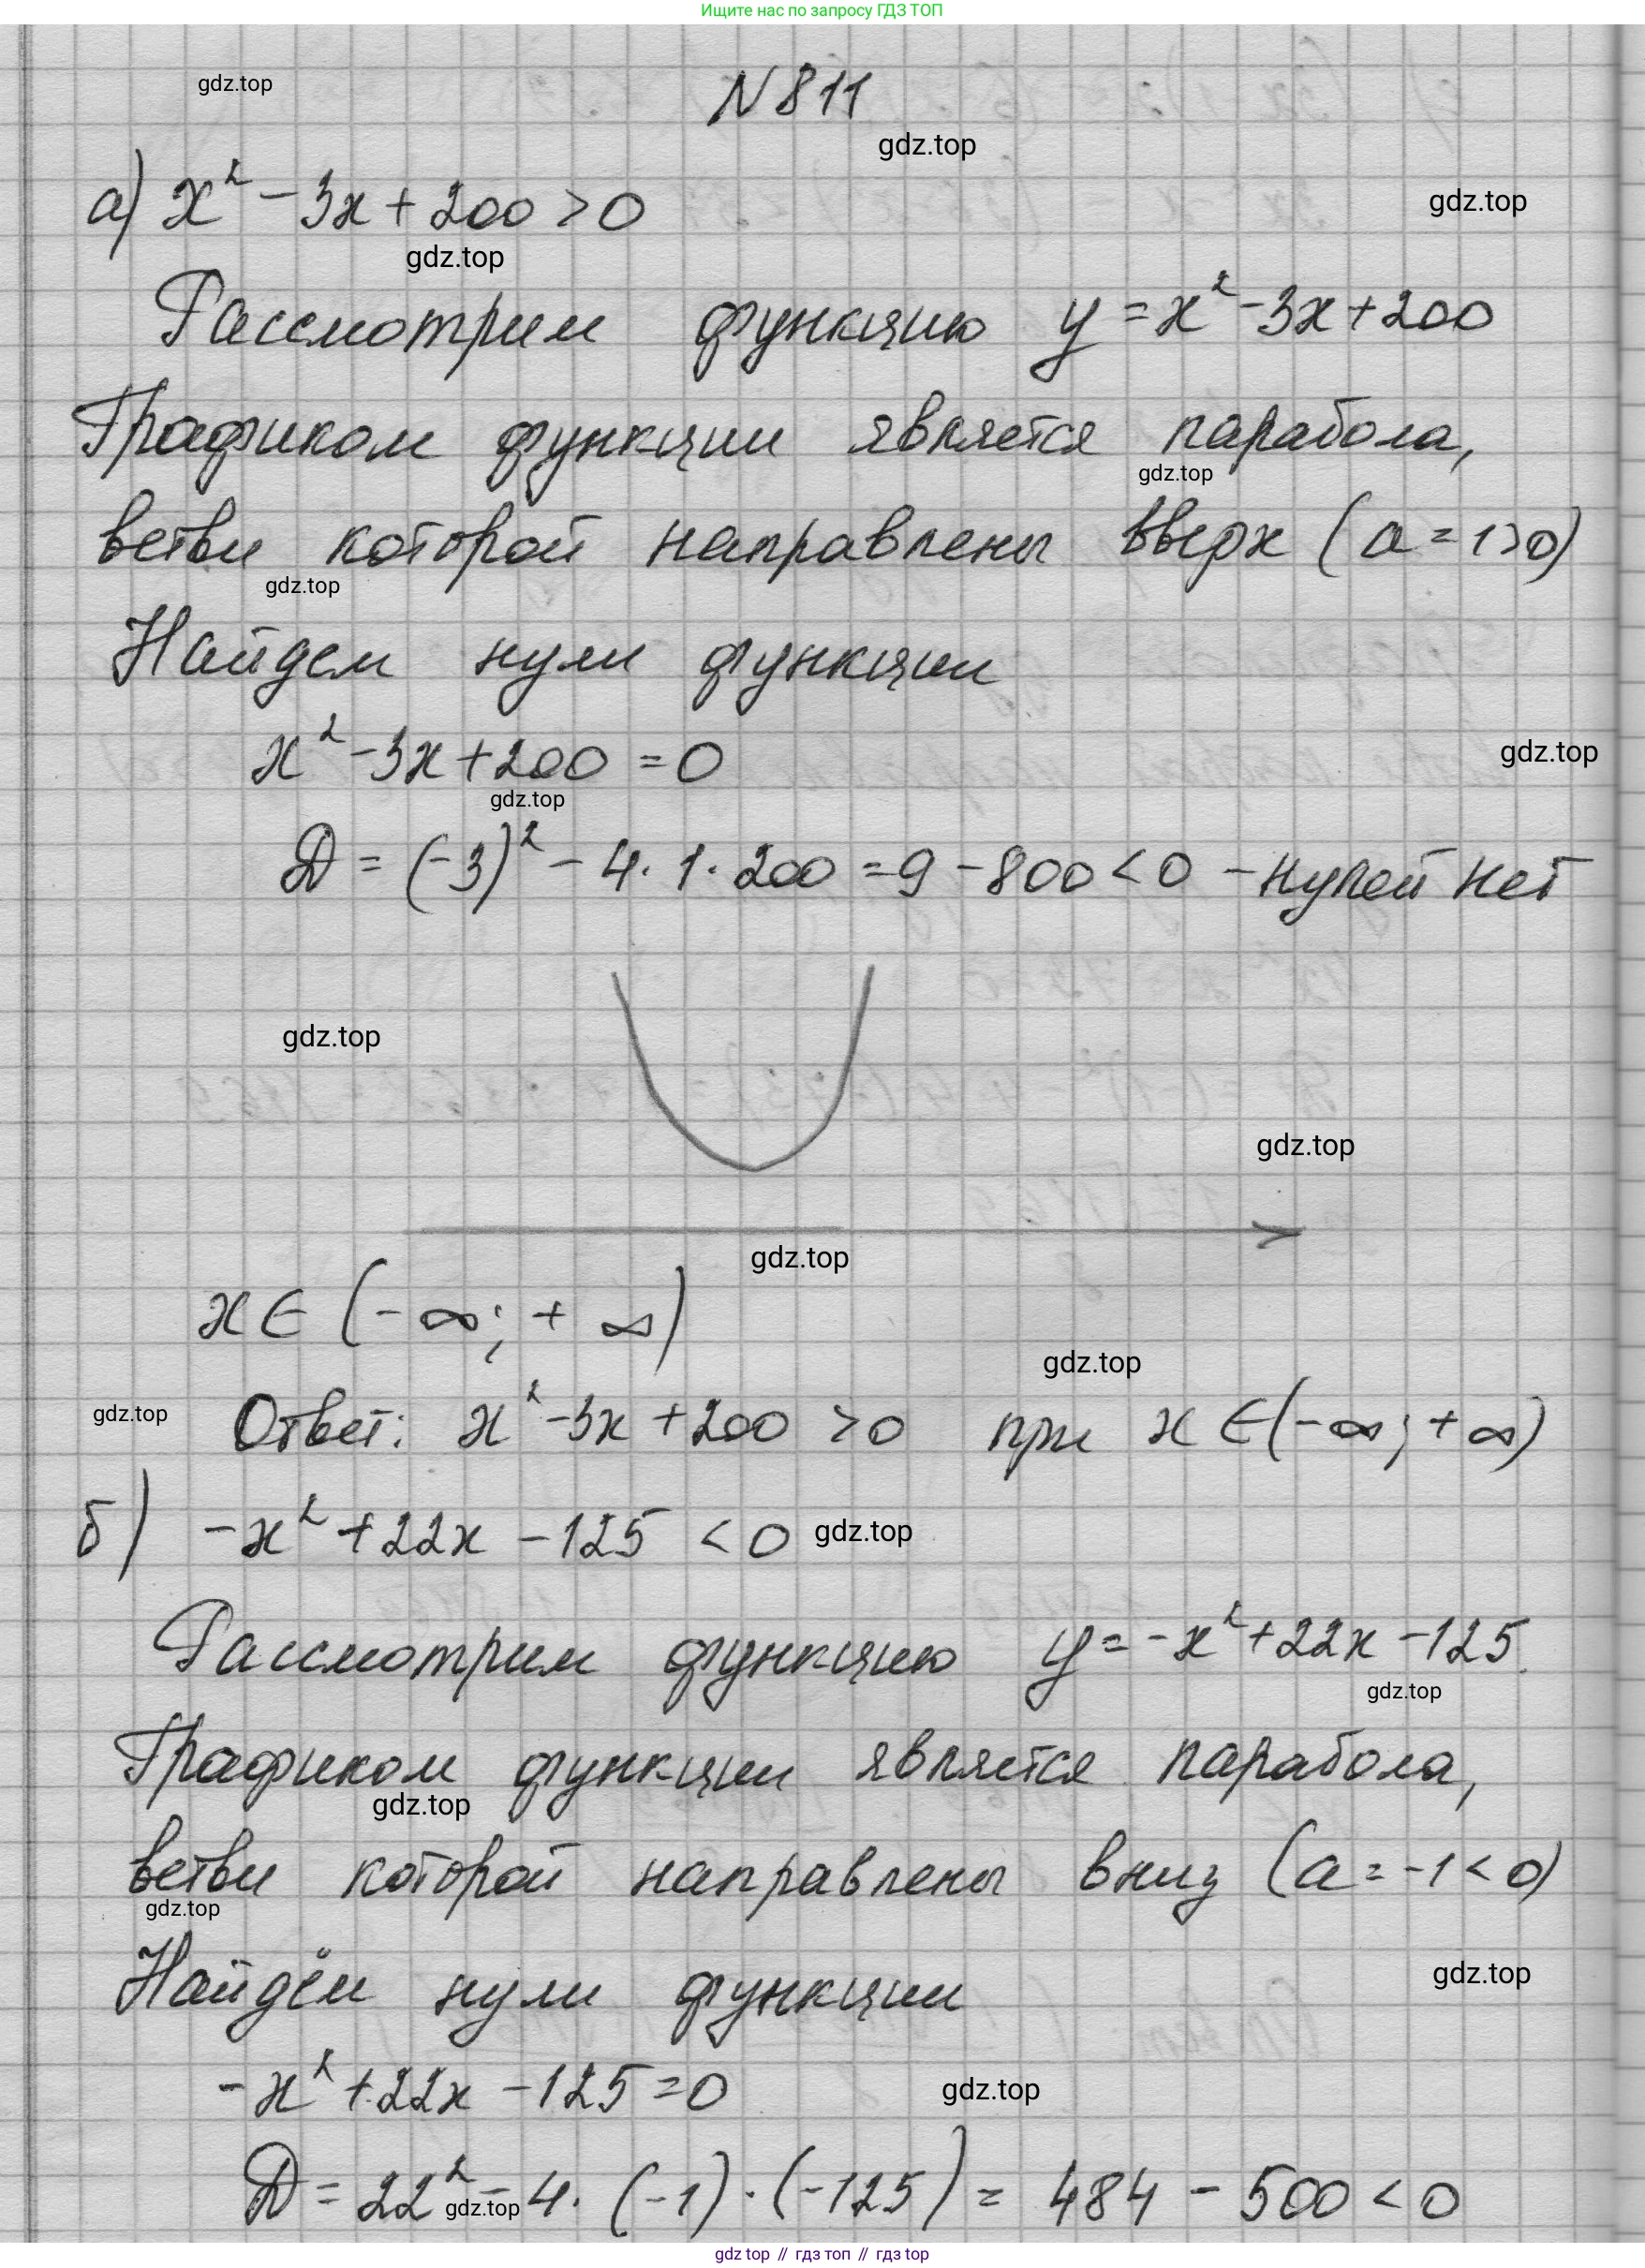 Ищите нас по запросу ГДЗ ТОП
gdz.top
N 811
gdz.top
а) x² - 3x + 200 > 0
gdz.top
gdz.top
Рассмотрим функцию y = x² - 3x + 200
Графиком функции является парабола,
gdz.top
ветви которой направлены вверх (a = 1 > 0)
gdz.top
Найдем нули функции
x² - 3x + 200 = 0
gdz.top
gdz.top
D = (-3)² - 4 · 1 · 200 = 9 - 800 < 0 - нулей нет
gdz.top
gdz.top
gdz.top
x ∈ (-∞; +∞)
gdz.top
gdz.top
Ответ: x² - 3x + 200 > 0 при x ∈ (-∞; +∞)
б) -x² + 22x - 125 < 0
gdz.top
Рассмотрим функцию y = -x² + 22x - 125.
gdz.top
Графиком функции является парабола,
gdz.top
ветви которой направлены вниз (a = -1 < 0)
gdz.top
gdz.top
Найдём нули функции
-x² + 22x - 125 = 0
gdz.top
D = 22² - 4 · (-1) · (-125) = 484 - 500 < 0
gdz.top
gdz top // гдз топ // гдз top